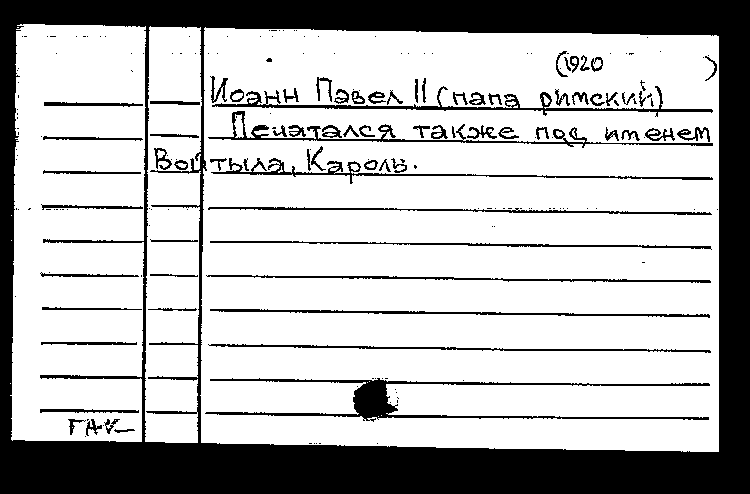 (1920 )
Иоанн Павел II (папа римский)
Печатался также под именем
Войтыла, Кароль.
ГАК